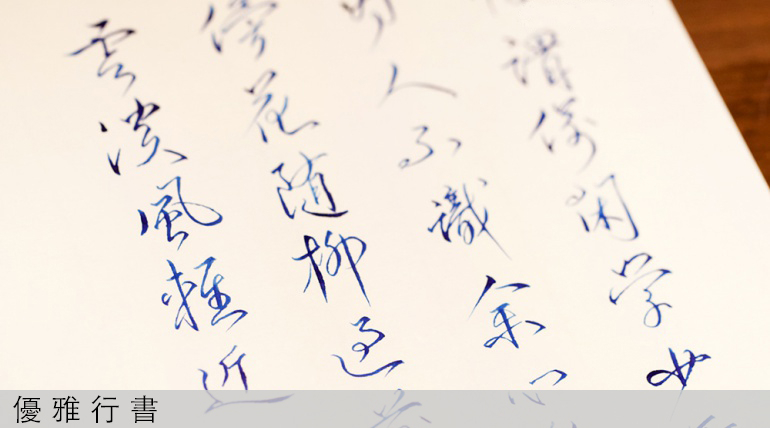 雲淡風輕近
傍花随柳過
人不識余心
謂偷閑学少
優雅行書